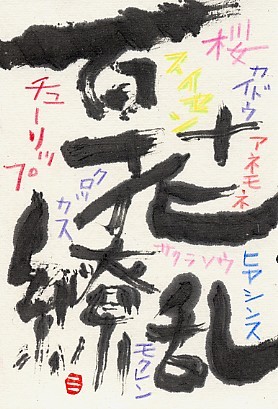 百花繚乱
桜
カイドウ
スイセン
アネモネ
チューリップ
クロッカス
サクラソウ
ヒヤシンス
モクレン